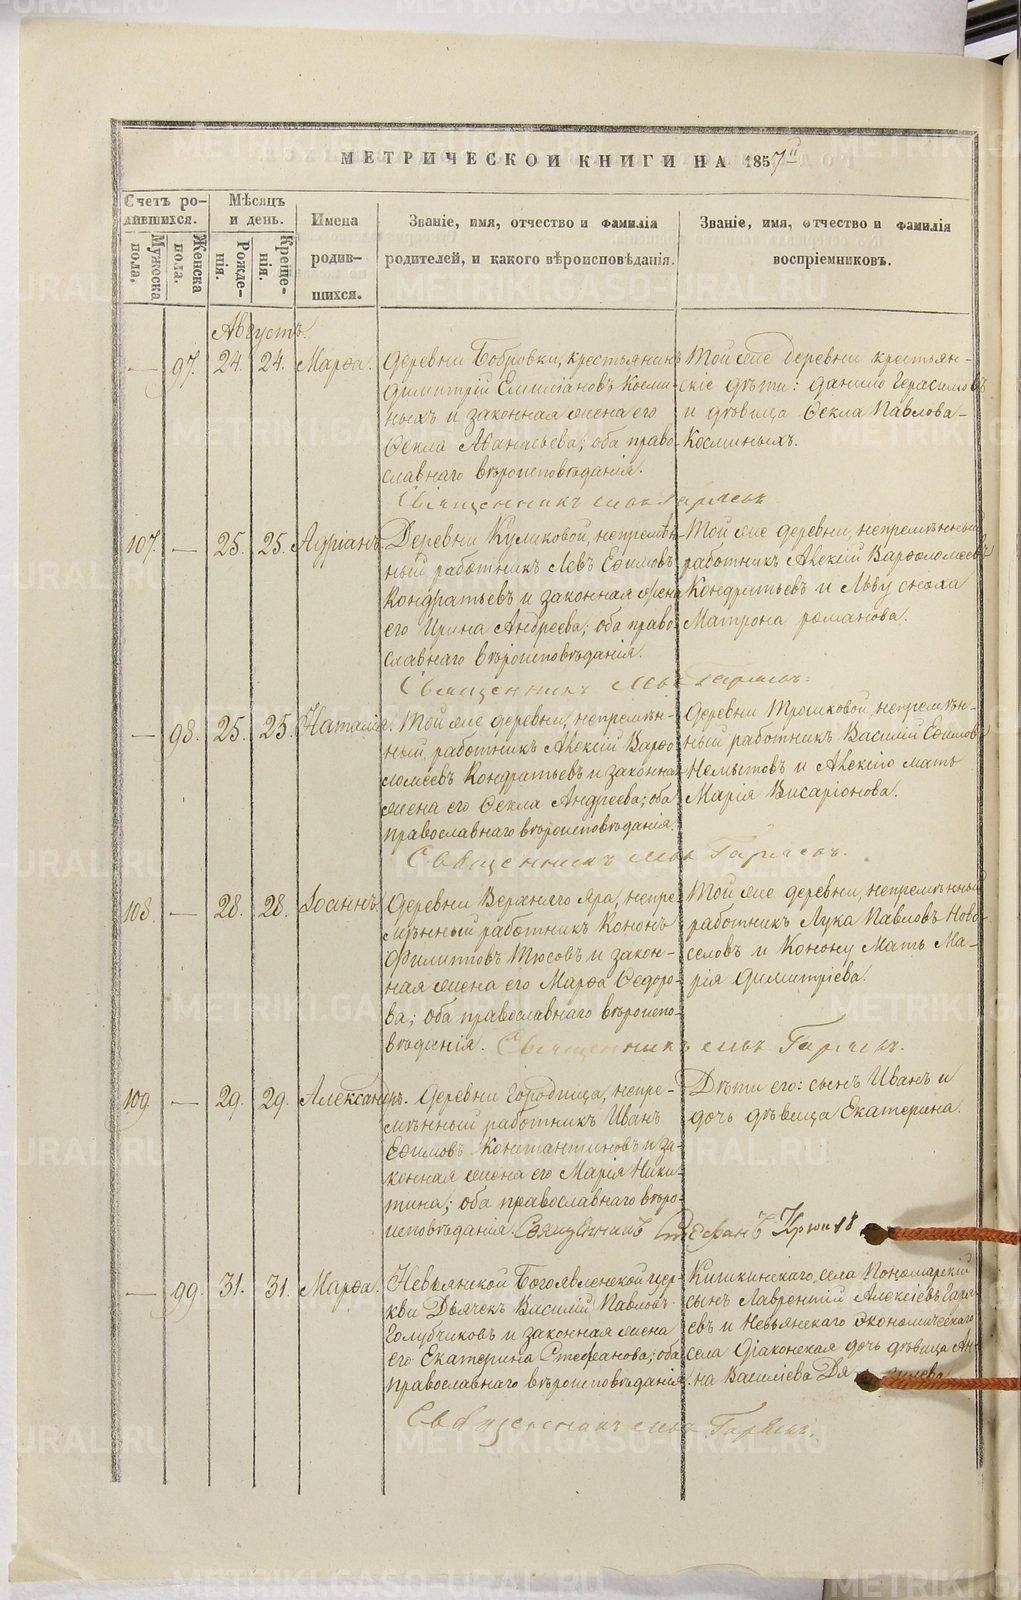 МЕТРИЧЕСКОЙ КНИГИ НА 1857й
Счетъ ро-
дившихся.
Мѣсяцъ
и день.
Имена
родив-
шихся.
Званіе, имя, отчество и фамилія
родителей, и какого вѣроисповѣданія.
Званіе, имя, отчество и фамилія
воспріемниковъ.
Мужеска
пола.
Женска
пола.
Рожде-
нія.
Креще-
нія.
Августъ.
— 97. 24. 24. Марѳа.
Деревни Бобровки, крестьянинъ
Димитрій Емиліановъ Косми-
ныхъ и законная жена его
Ѳекла Аѳанасьева; оба право-
славнаго вѣроисповѣданія.
Той же деревни крестьян-
скіе дѣти: Данило Герасимовъ
и дѣвица Ѳекла Павлова
Косминыхъ.
Священникъ
107. — 25. 25. Адріанъ.
Деревни Куликовой, непремѣн-
ный работникъ Левъ Еѳимовъ
Кондратьевъ и законная жена
его Ирина Андреева; оба право-
славнаго вѣроисповѣданія.
Той же деревни, непремѣнный
работникъ Алексій Варѳоломеевъ
Кондратьевъ и Льву сноха
Матрона Романова.
Священникъ
— 98. 25. 25. Наталія.
Той же деревни, непремѣн-
ный работникъ Алексій Варѳо-
ломеевъ Кондратьевъ и законная
жена его Ѳекла Андреева; оба
православнаго вѣроисповѣданія.
Деревни Трошковой, непремѣн-
ный работникъ Василій Еѳимовъ
Немытовъ и Алексію мать
Марія Висаріонова.
Священникъ
108. — 28. 28. Іоаннъ.
Деревни Верхняго Яра, непре-
мѣнный работникъ Кононъ
Филипповъ Тюсовъ и закон-
ная жена его Марѳа Ѳедоро-
ва; оба православнаго вѣроиспо-
вѣданія.
Той же деревни, непремѣнный
работникъ Лука Павловъ Ново-
селовъ и Конону мать Ма-
рія Димитріева.
Священникъ
109. — 29. 29. Александръ.
Деревни Городища, непре-
мѣнный работникъ Иванъ
Еѳимовъ Константиновъ и за-
конная жена его Марія Ники-
тина; оба православнаго вѣро-
исповѣданія.
Дѣти его: сынъ Иванъ и
дочь дѣвица Екатерина.
Священникъ Стефанъ
— 99. 31. 31. Марѳа.
Невьянской Богоявленской цер-
кви Дьячекъ Василій Павловъ
Голубчиковъ и законная жена
его Екатерина Стефанова; оба
православнаго вѣроисповѣданія.
Кишкинскаго села Пономарскій
сынъ Лаврентій Алексіевъ Гаря-
евъ и Невьянскаго экономическаго
села Діаконская дочь дѣвица Ан-
на Василіева
Священникъ